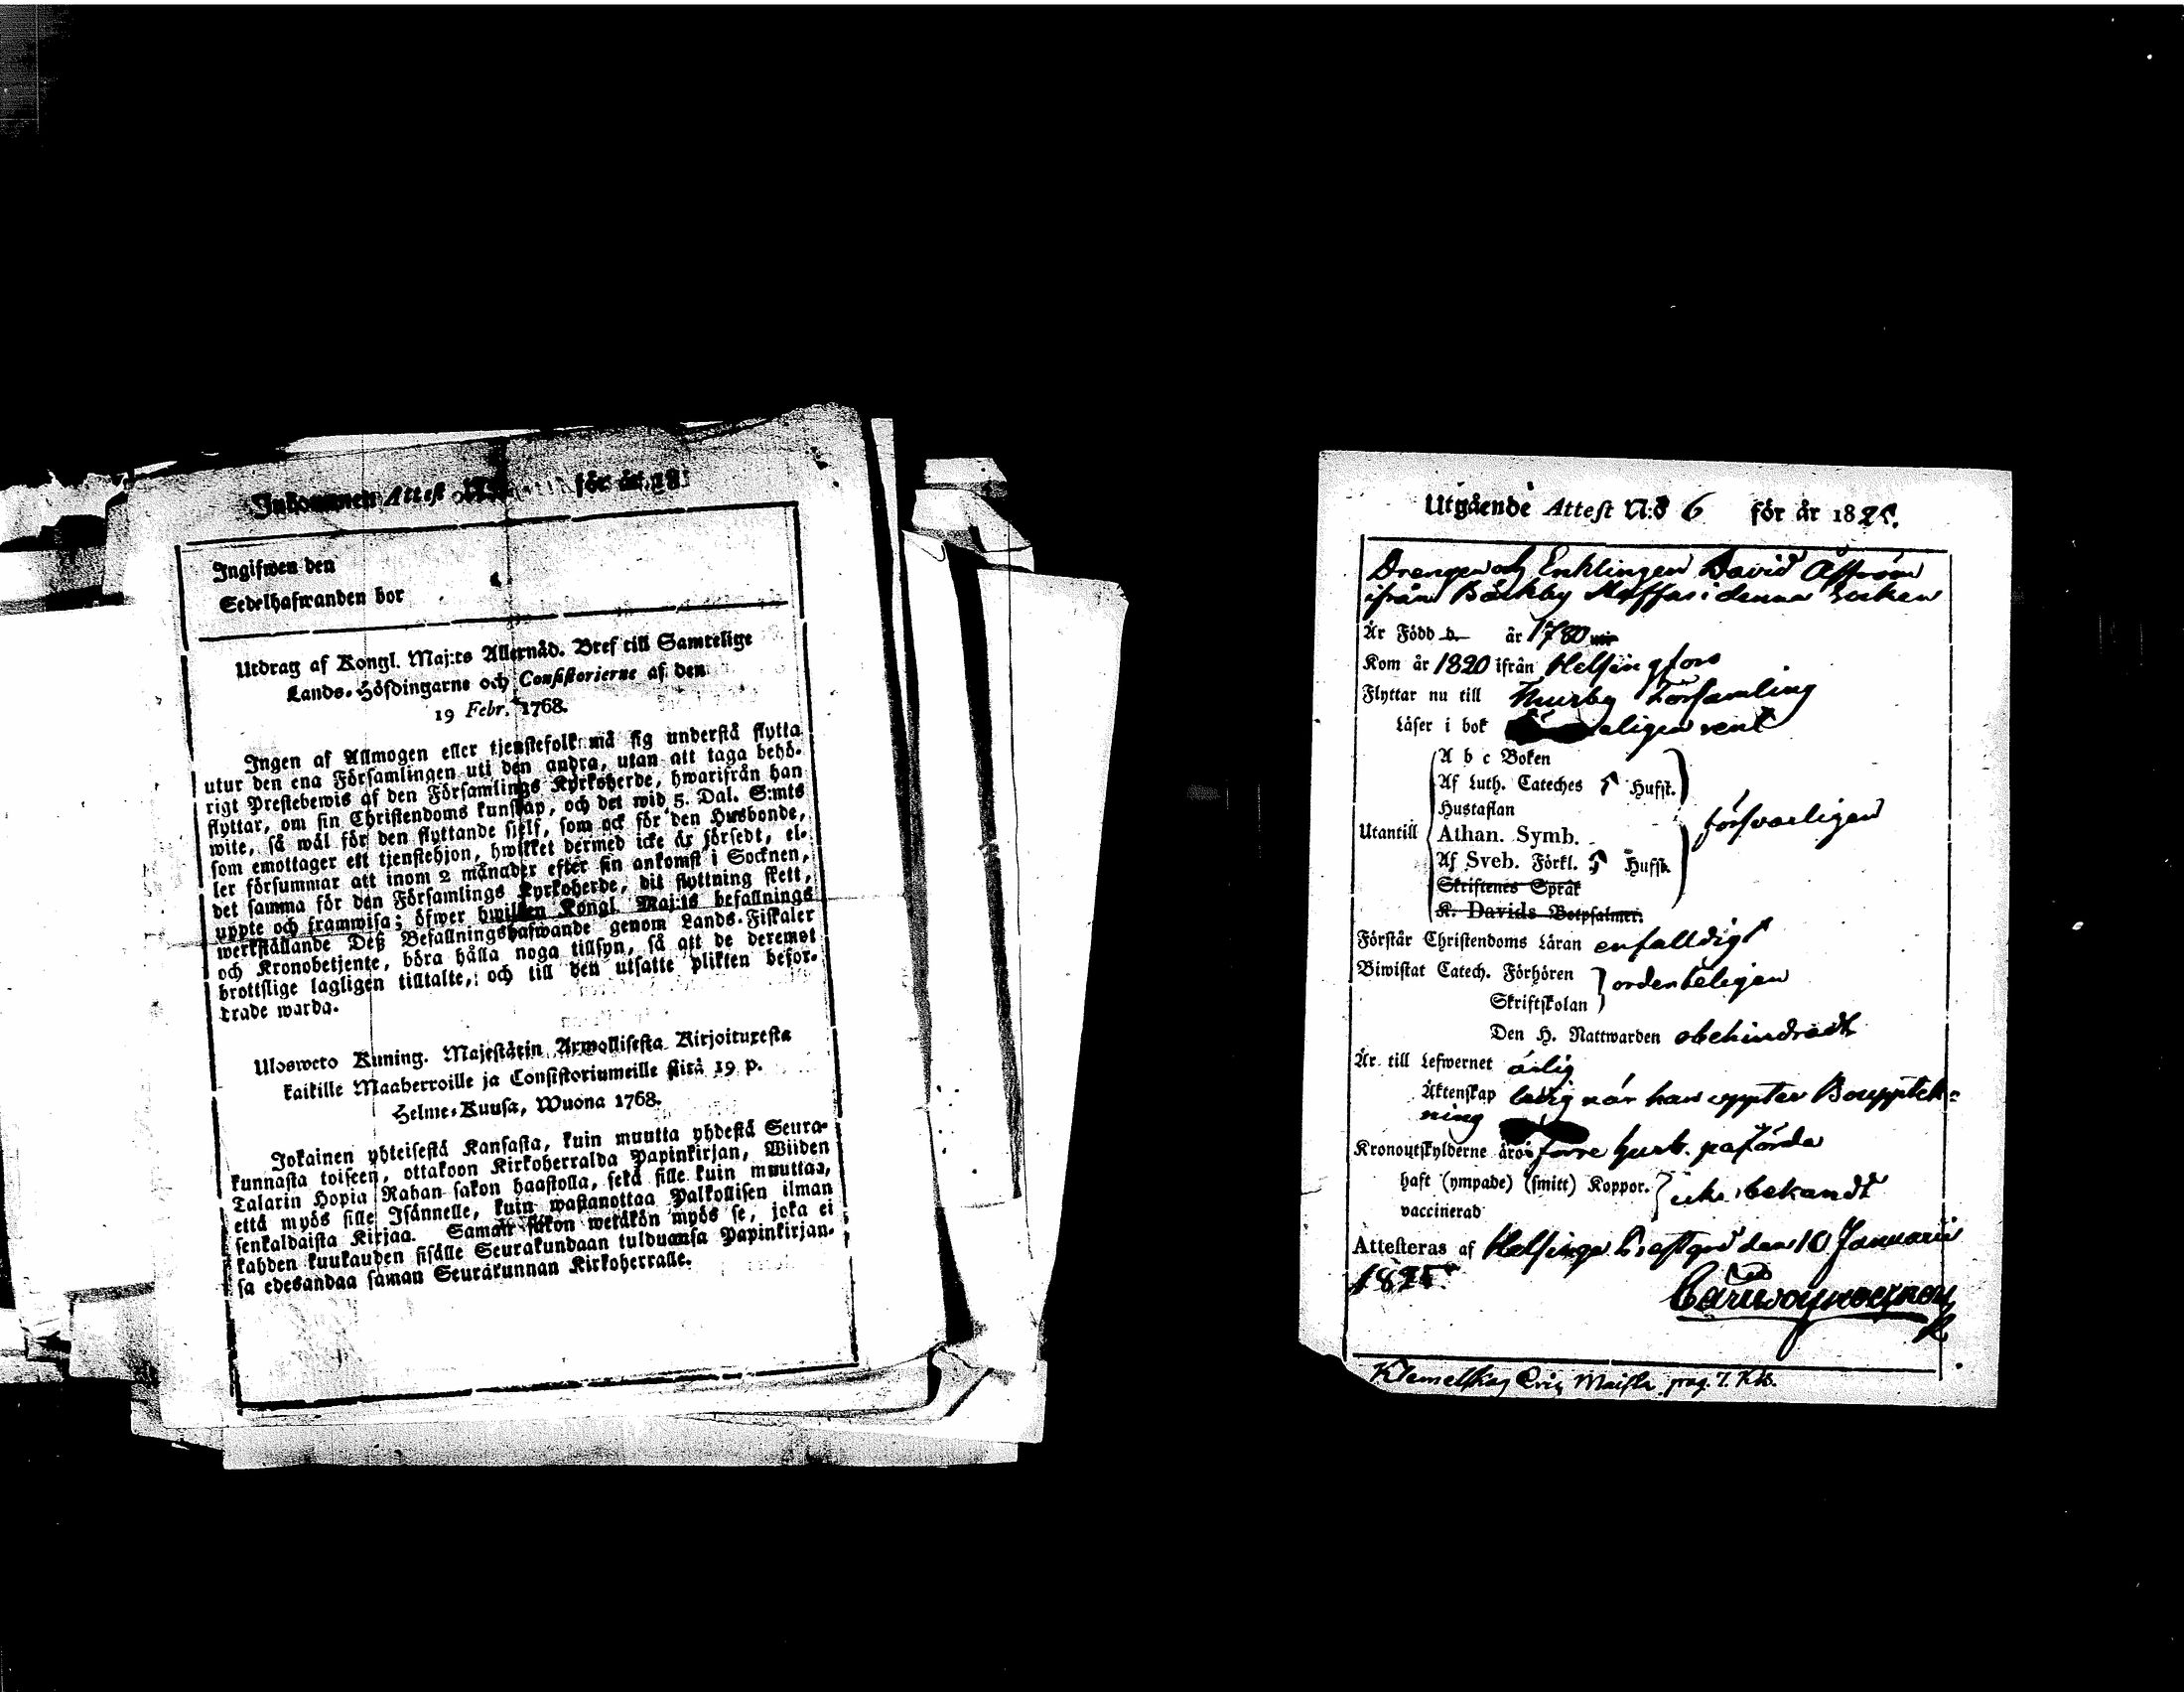 Inkommen Attest N:o för år 18
Ingifwen den
Sedelhafwanden bor
Utdrag af Kongl. Maj:ts Allernåd. Bref till Samtelige
Lands-Höfdingarne och Consistorierne af den
19 Febr. 1768.
Ingen af Allmogen eller tjenstefolk må sig understå flytta
utur den ena Församlingen uti den andra, utan att taga behö-
rigt Prestebewis af den Församlings Kyrkoherde, hwarifrån han
flyttar, om sin Christendoms kunskap, och det wid 5. Dal. S:mts
wite, så wäl för den flyttande sjelf, som ock för den Husbonde,
som emottager ett tjenstehjon, hwilket dermed icke är försedt, el-
ler försummar att inom 2 månader efter sin ankomst i Socknen,
det samma för den Församlings Kyrkoherde, dit flyttning skett,
uppte och framwisa; öfwer hwilken Kongl Maj:ts befallnings
werkställande Deß Befallningshafwande genom Lands-Fiskaler
och Kronobetjente, böra hålla noga tillsyn, så att de deremot
brottslige lagligen tilltalte, och till den utsatte plikten befor-
drade warda.
Ulosweto Kuning. Majestätin Armollisesta Kirjoituxesta
kaikille Maaherroille ja Consistoriumeille siitä 19 p.
Helme-Kuusa, Wuona 1768.
Jokainen yhteisestä Kansasta, kuin muutta yhdestä Seura-
kunnasta toiseen, ottakoon Kirkoherralda Papinkirjan, Wiiden
Talarin Hopia Rahan sakon haastolla, sekä sille kuin muuttaa,
että myös sille Isännelle, kuin wastanottaa Palkollisen ilman
senkaldaista Kirjaa. Saman sakon wetäkön myös se, joka ei
kahden kuukauden sisälle Seurakundaan tulduansa Papinkirjan-
sa edesandaa saman Seurakunnan Kirkoherralle.
Utgående Attest N:o 6 för år 1825.
Drengen och Enklingen David Åström
ifrån Bäckby Staffas i denna Socken
Är Född d. år 1780
Kom år 1820 ifrån Helsingfors
Flyttar nu till Thusby Församling
Läser i bok eligen rent
A b c Boken
Af Luth. Cateches 5 Hufst.
Hustaflan
Utantill Athan. Symb. försvarligen
Af Sveb. Förkl. 5 Hufst.
Skriftenes Språk
K. Davids Botpsalmer.
Förstår Christendoms Läran enfalldigt
Biwistat Catech. Förhören ordenteligen
Skriftskolan
Den H. Nattwarden obehindradt
Är till Lefwernet ärlig
Äktenskap ledig när han uppter Bouppteck-
ning
Kronoutskylderne äro påförda
haft (ympade) (smitt) Koppor. icke bekandt
vaccinerad
Attesteras af Helsinge Prästgrd den 10 Januarii
1825.
Klemetskog Eric Maijla pag. 7. Kb.